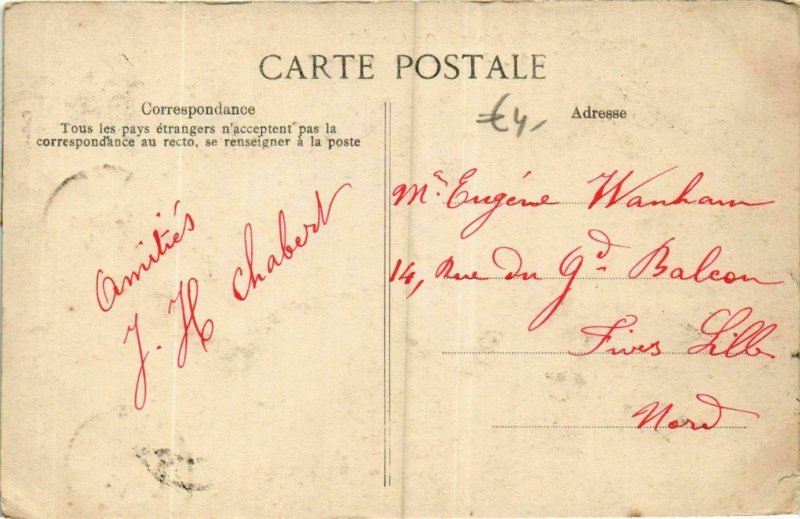 CARTE POSTALE
Correspondance
Tous les pays étrangers n'acceptent pas la
correspondance au recto, se renseigner à la poste
Amitiés
J. H Chabert
€4,-
Adresse
Mr. Eugéne Wanham
14, Rue du Gd Balcon
Fives Lille
Nord